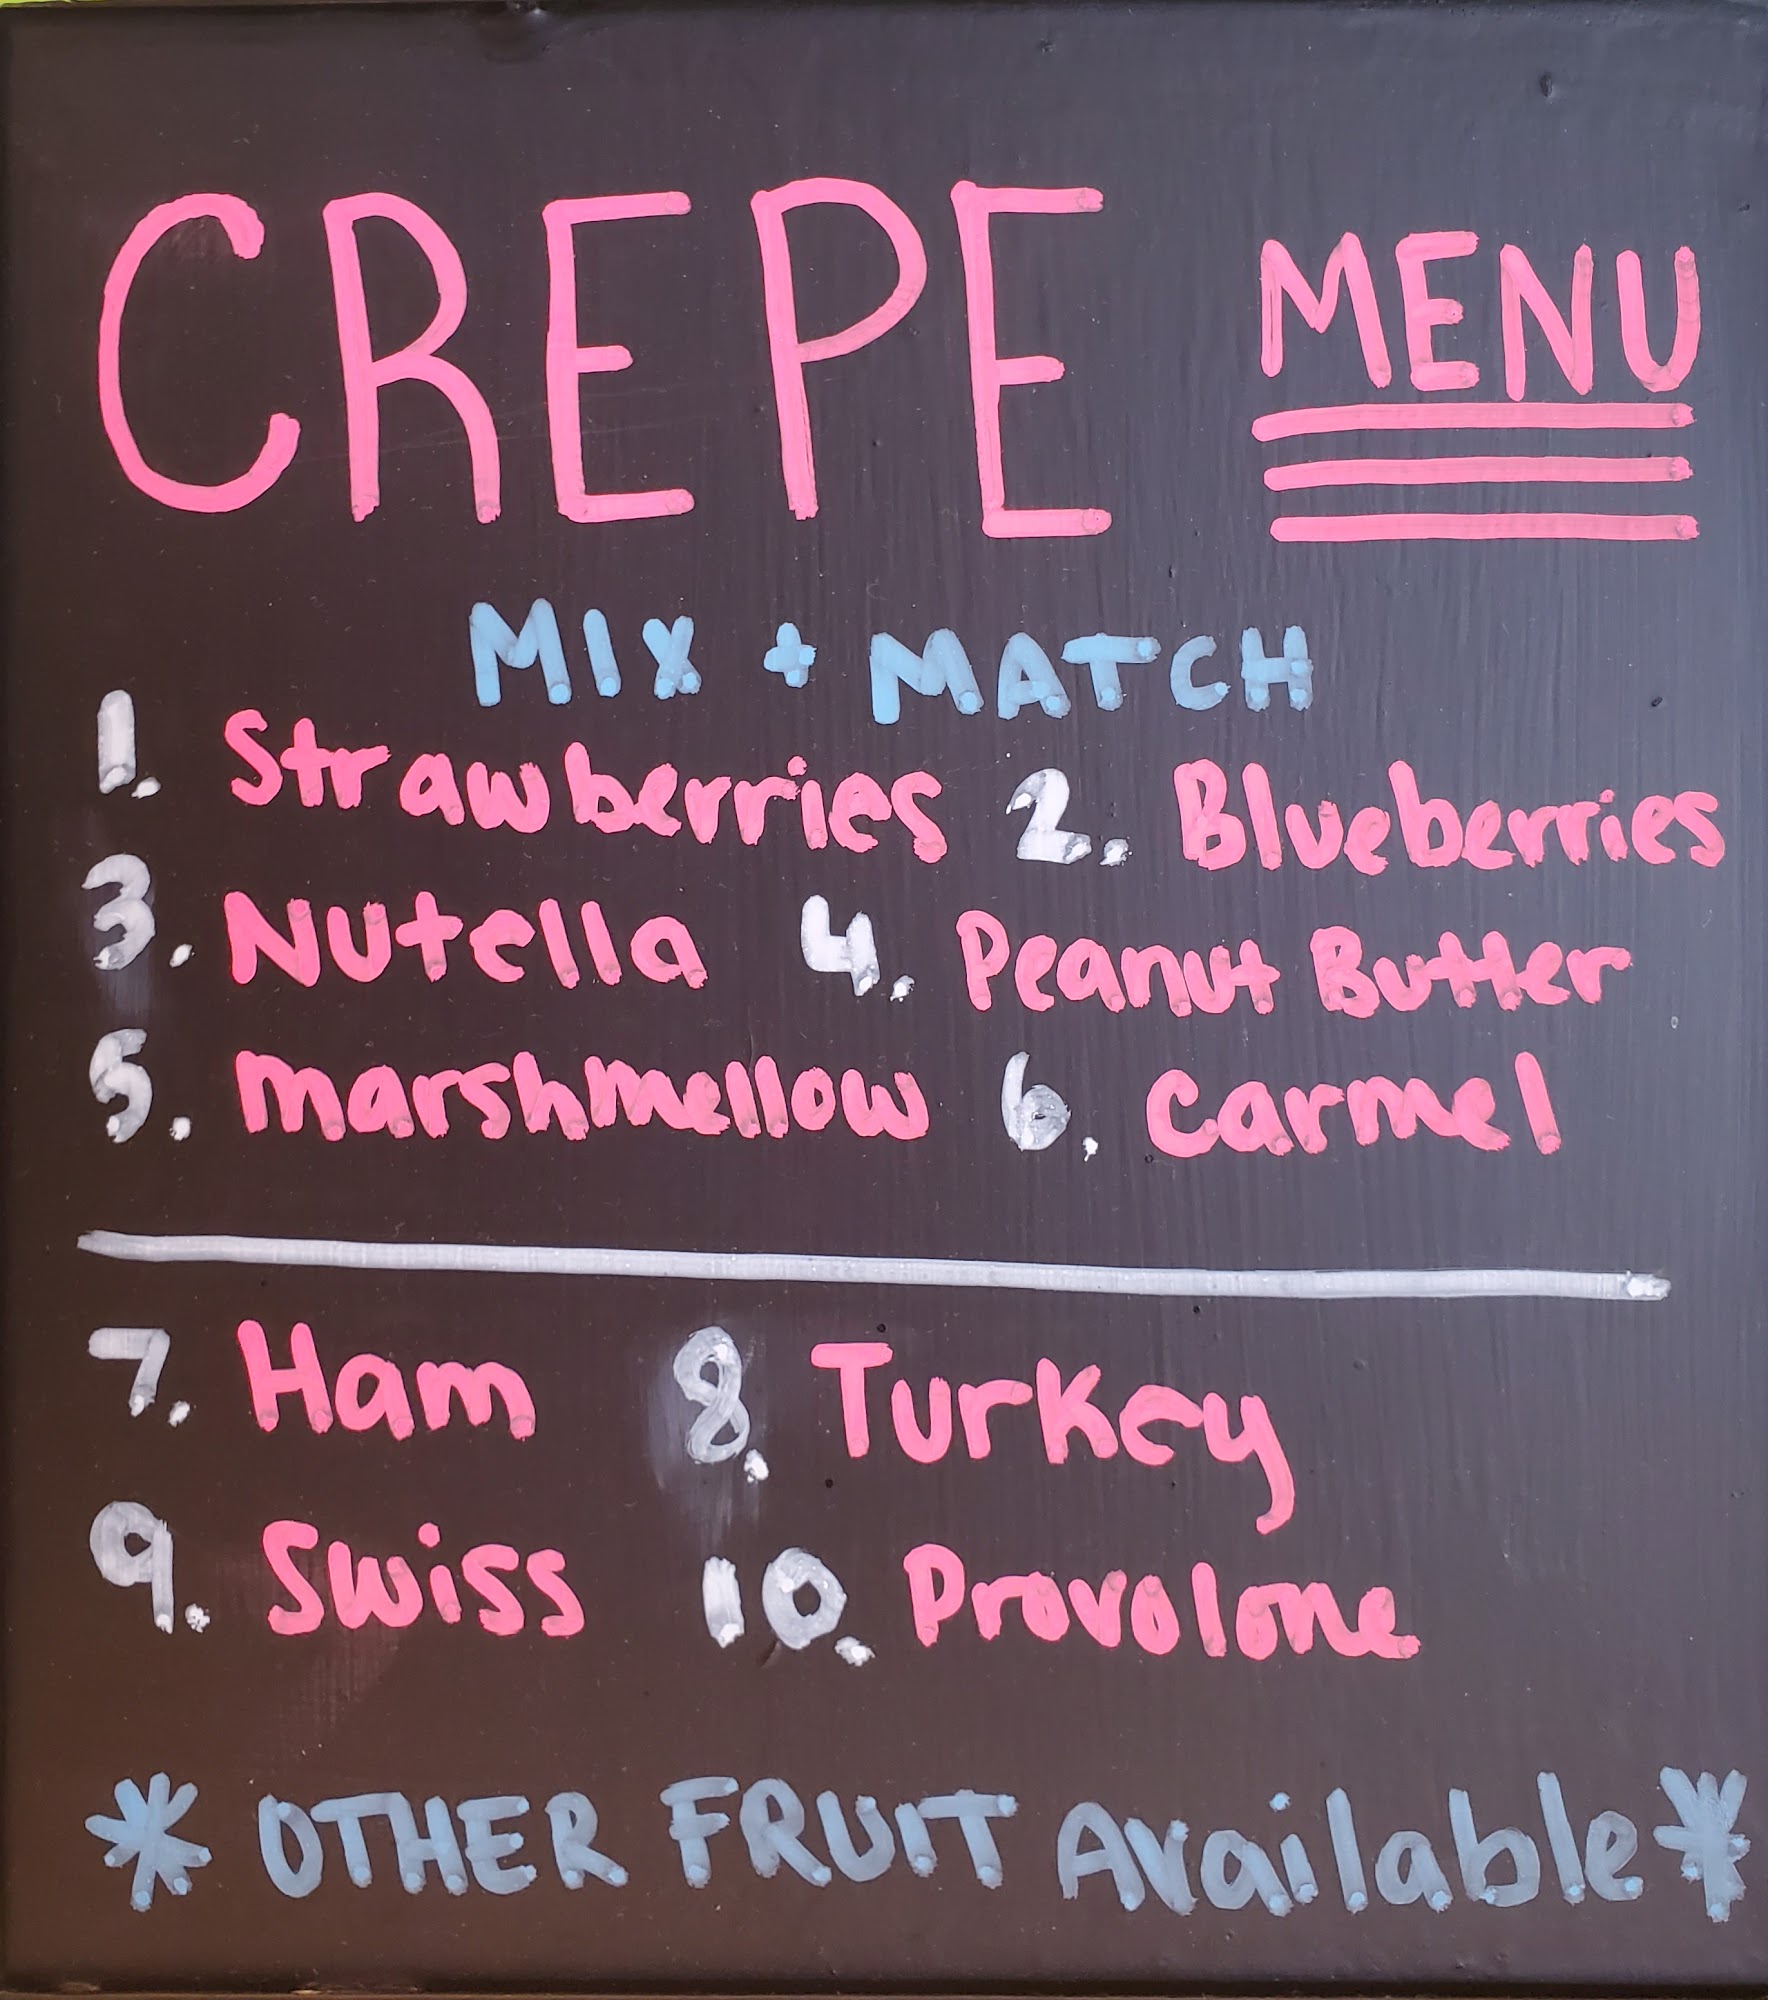 CREPE MENU
MIX + MATCH
1. Strawberries 2. Blueberries
3. Nutella 4. Peanut Butter
5. marshmellow 6. Carmel
7. Ham 8. Turkey
9. Swiss 10. Provolone
* OTHER FRUIT Available *